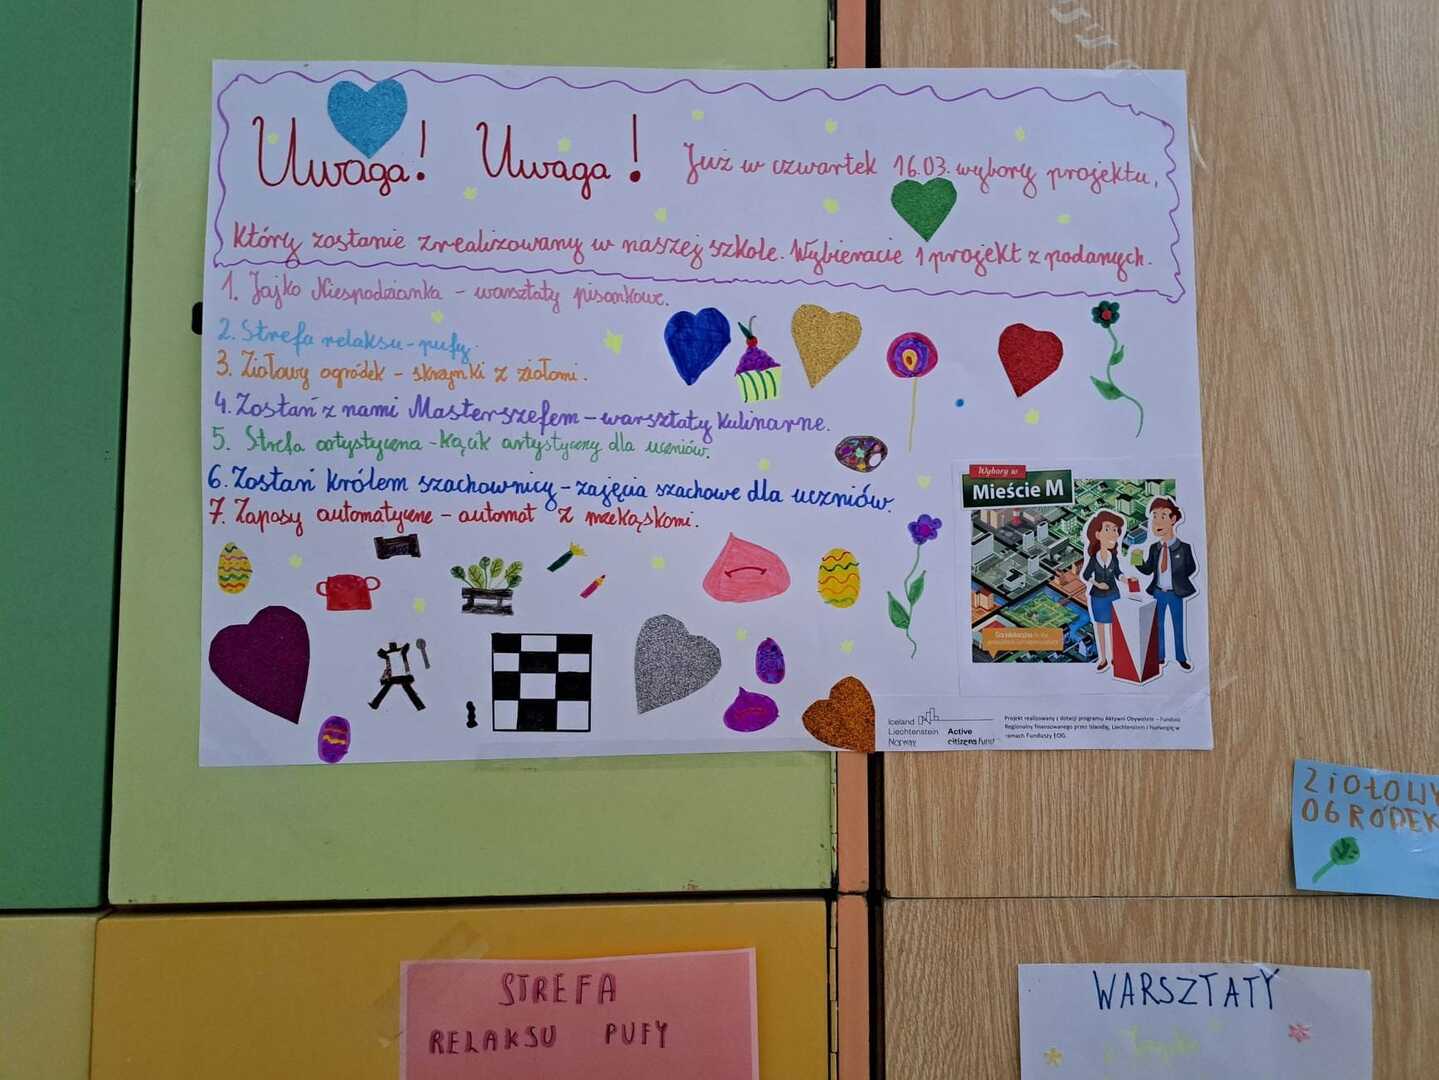 Uwaga! Uwaga! Już w czwartek 16.03. wybory projektu,
który zostanie zrealizowany w naszej szkole. Wybieracie 1 projekt z podanych.
1. Jajko Niespodzianka – warsztaty pisankowe.
2. Strefa relaksu – pufy.
3. Ziołowy ogródek – skrzynki z ziołami.
4. Zostań z nami Masterszefem – warsztaty kulinarne.
5. Strefa artystyczna – kącik artystyczny dla uczniów.
6. Zostań królem szachownicy – zajęcia szachowe dla uczniów.
7. Zapasy automatyczne – automat z przekąskami.
Wybory w
Mieście M
Iceland
Liechtenstein
Norway
Active
citizens fund
Projekt realizowany z dotacji programu Aktywni Obywatele – Fundusz
Regionalny finansowanego przez Islandię, Liechtenstein i Norwegię w
ramach Funduszy EOG.
ZIOŁOWY
OGRÓDEK
STREFA
RELAKSU PUFY
WARSZTATY